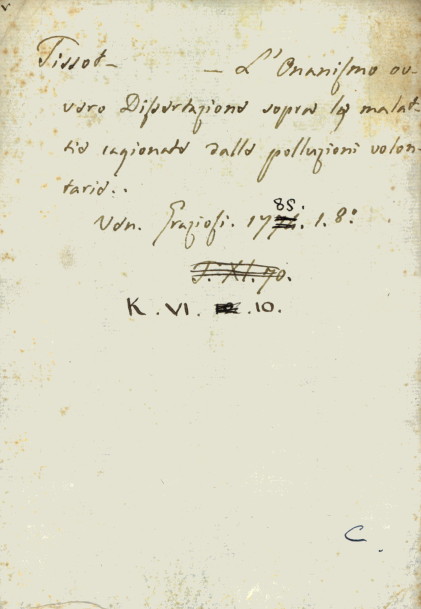 Tissot — — L'Onanismo ov-
vero Dissertazione sopra le malat-
tie cagionate dalle polluzioni volon-
tarie..
Ven. Graziosi. 1785. 1. 8º
J. XI. 70.
K. VI. .10.
C